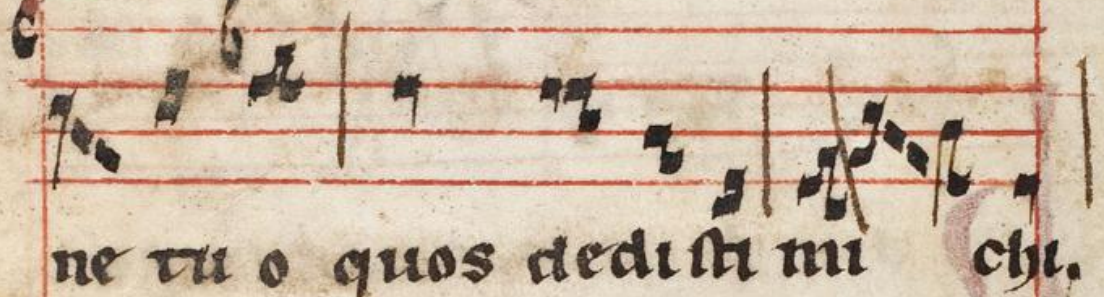 ne tu o quos dedisti mi chi.